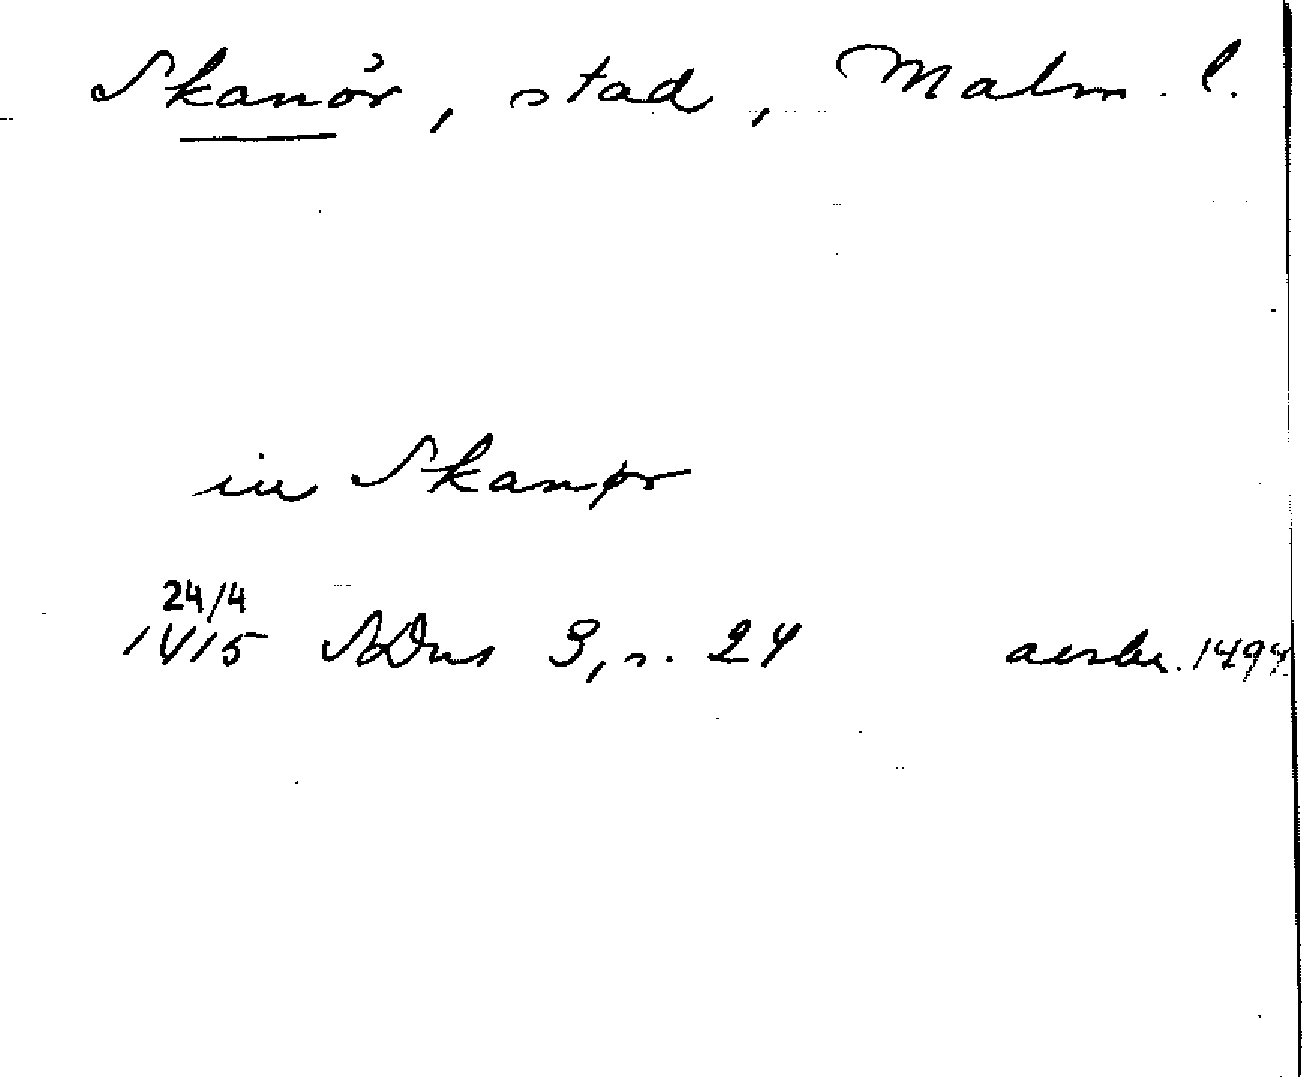 Skanör, stad, Malm. l.
in Skanør
24/4
1415 SDns 3, s. 24 avskr. 1494